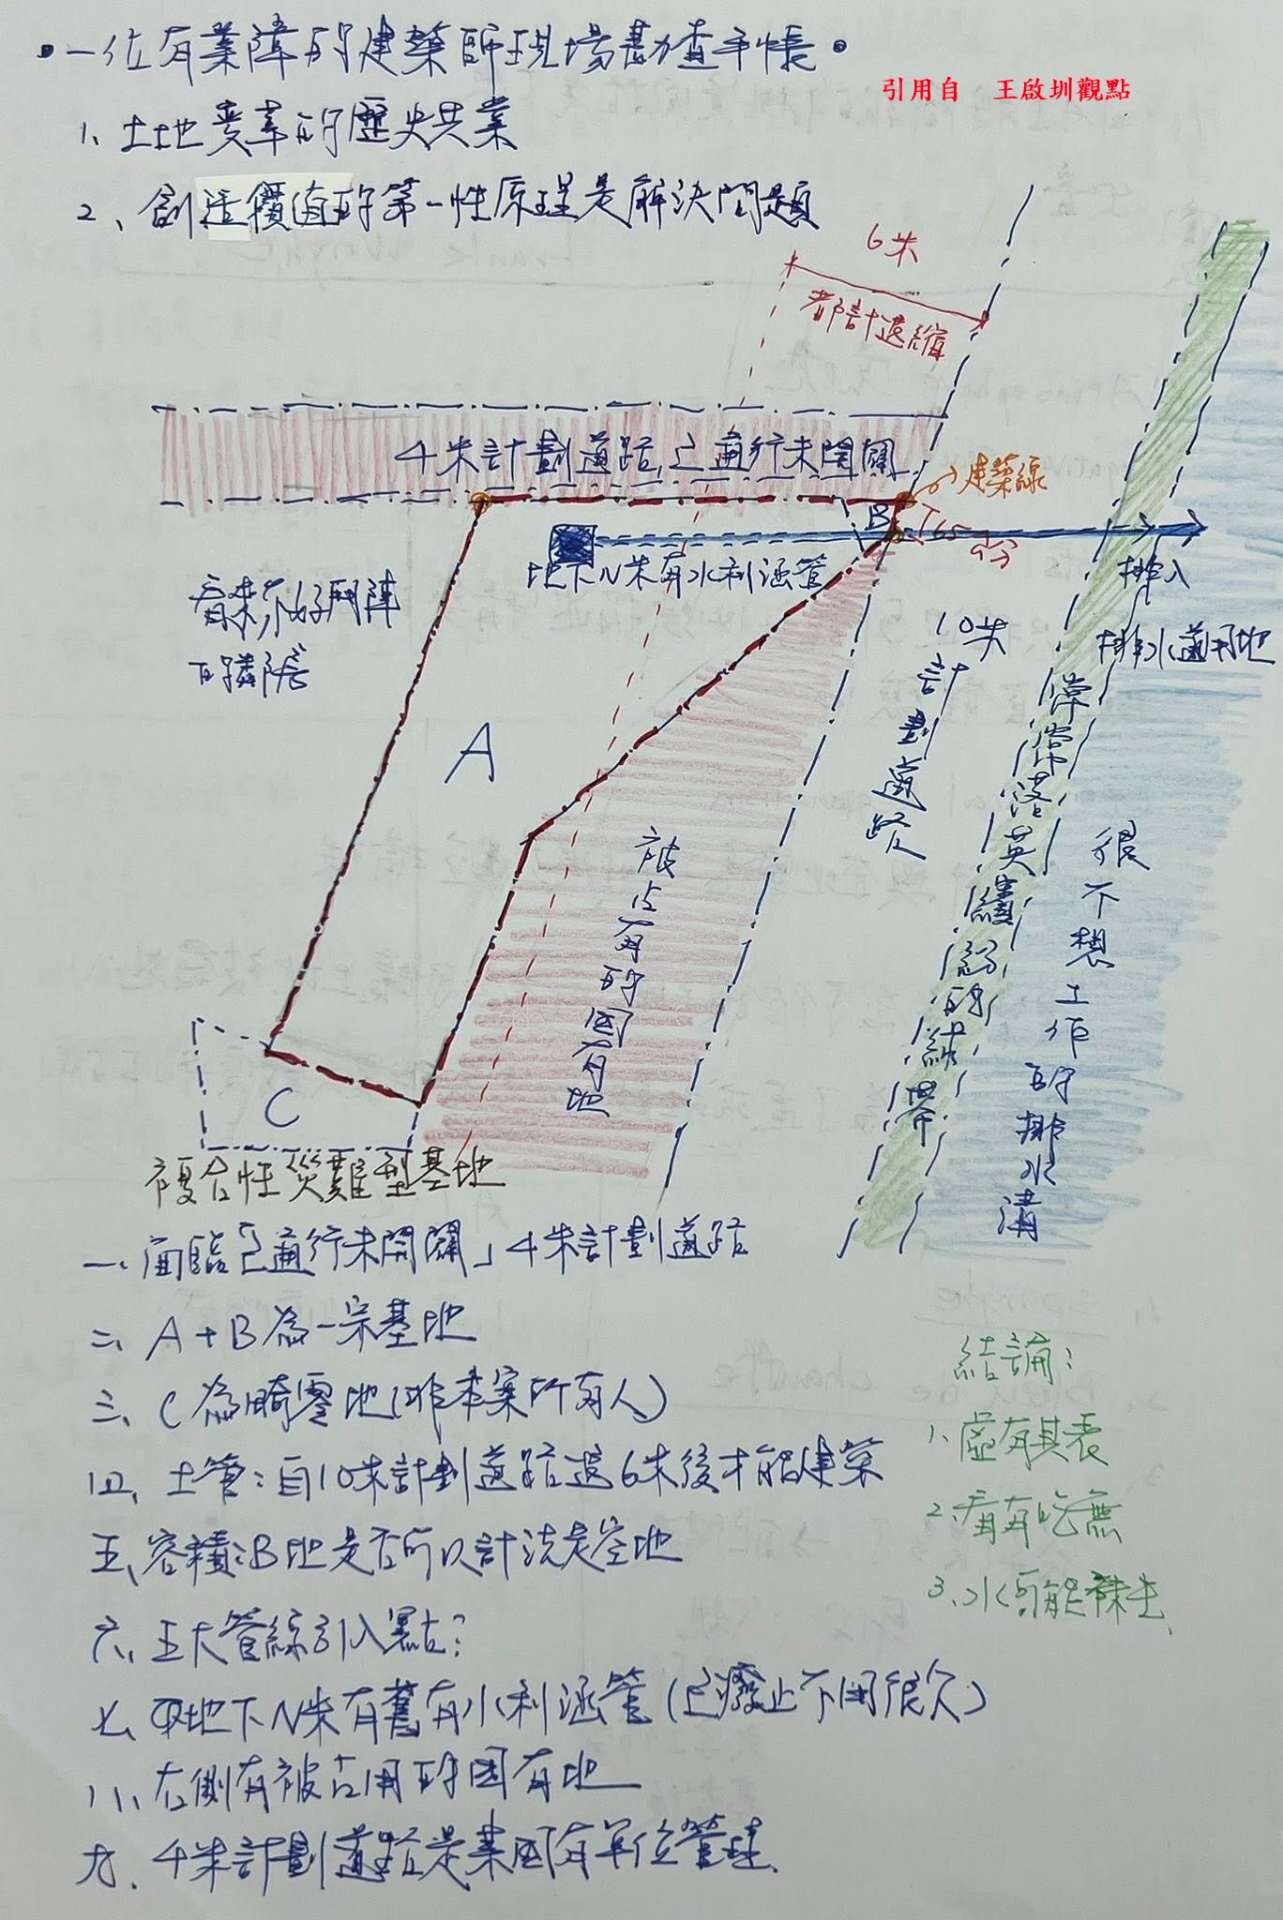 •一位有業障的建築師現場勘查手帳•
引用自 王啟圳觀點
1、土地變革的歷史共業
2、創造價值的第一性原理是解決問題
6米
都計退縮
4米計劃道路,已通行未開闢
建築線
B
165公分
地下N米有水利涵管
排入
排水道用地
看來不好鬥陣
的鄰房
A
10米計劃道路
常常落英繽紛的綠帶
很不想工作的排水溝
被占有的國有地
C
複合性災難型基地
一、面臨「已通行未開闢」4米計劃道路
二、A+B為一宗基地
三、C為畸零地(非本案所有人)
四、土管:自10米計劃道路退6米後才能建築
五、容積:B地是否可以計法定空地
六、五大管線引入點?
七、地下N米有舊有水利涵管(已廢止不用很久)
八、右側有被占用的國有地
九、4米計劃道路是某國有單位管理.
結論:
1、虛有其表
2、看有吃無